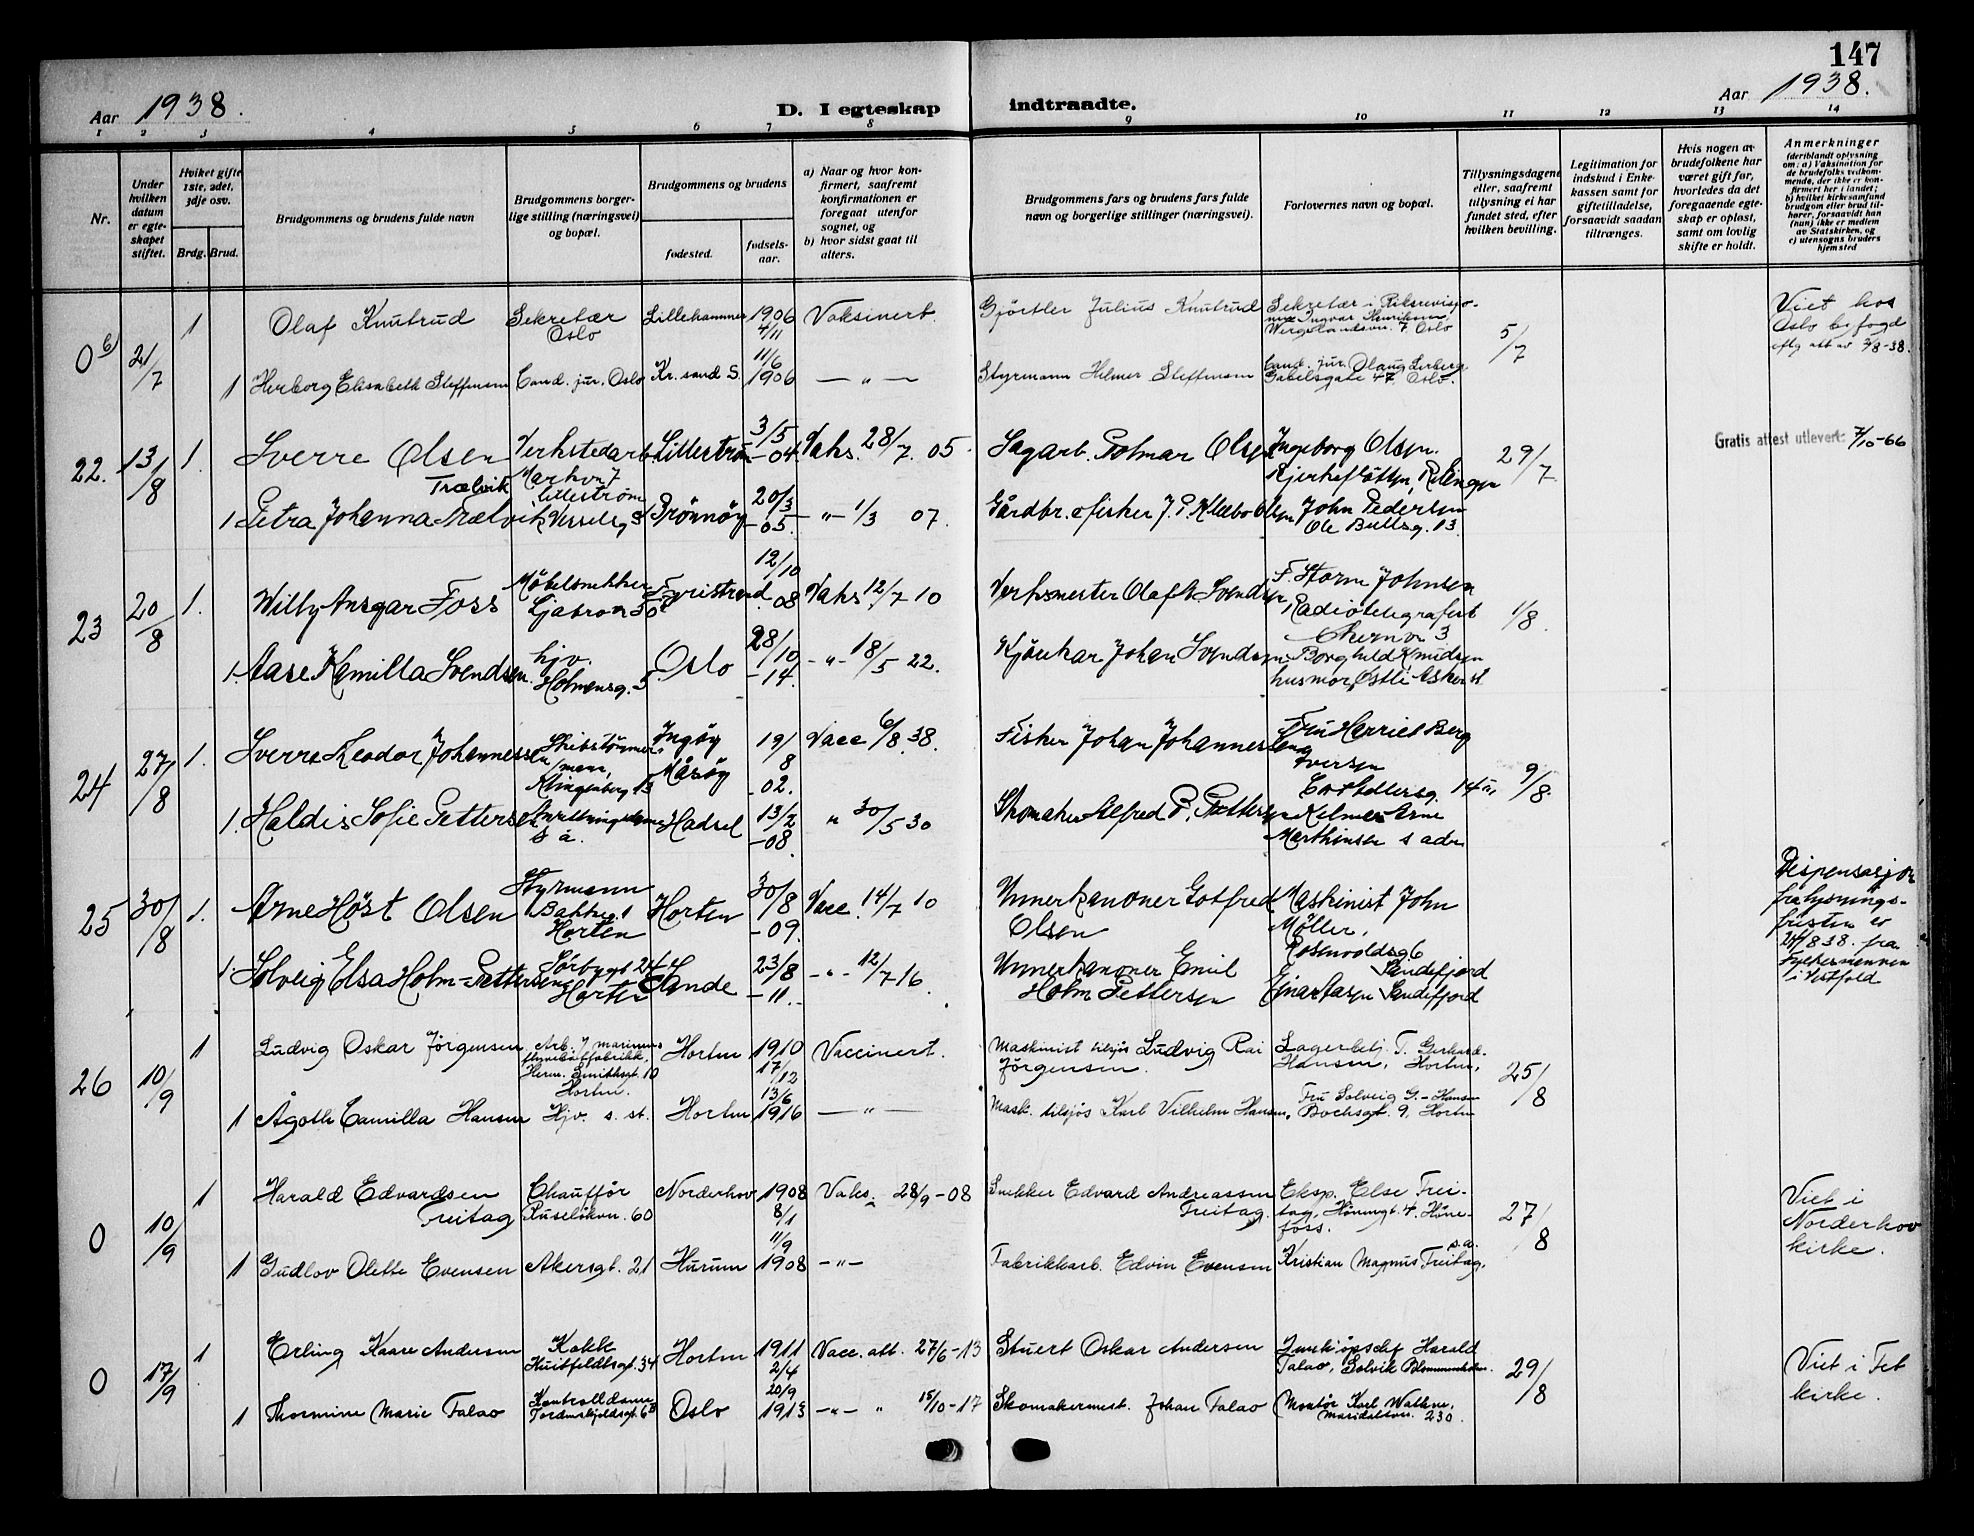 147
Aar 1938.
D. I egteskap indtraadte.
Aar 1938.
1 2 3 4 5 6 7 8 9 10 11 12 13 14
Nr.
Under hvilken datum er egteskapet stiftet.
Hvilket gifte 1ste, 2det, 3dje osv.
Brdg. Brud.
Brudgommens og brudens fulde navn
Brudgommens borgerlige stilling (næringsvei) og bopæl.
Brudgommens og brudens
fødested.
fødselsaar.
a) Naar og hvor konfirmert, saafremt konfirmationen er foregaat utenfor sognet, og
b) hvor sidst gaat til alters.
Brudgommens fars og brudens fars fulde navn og borgerlige stillinger (næringsvei).
Forlovernes navn og bopæl.
Tillysningsdagene eller, saafremt tillysning ei har fundet sted, efter hvilken bevilling.
Legitimation for indskud i Enkekassen samt for giftetilladelse, forsaavidt saadan tiltrænges.
Hvis nogen av brudefolkene har været gift før, hvorledes da det foregaaende egteskap er opløst, samt om lovlig skifte er holdt.
Anmerkninger
(deriblandt oplysning om: a) Vaksination for de brudefolks vedkommende, der ikke er konfirmert her i landet; b) hvilket kirkesamfund brudgom eller brud tilhører, forsaavidt han (hun) ikke er medlem av Statskirken, og c) utensogns bruders hjemsted
0 6) 21/7 1 Olaf Knutrud Sekretær Oslo Lillehammer 1906 4/11 Vaksinert. Gjørtler Julius Knutrud Sekretær i Riksrevisjonen Ingvar Henriksen, Wergelandsvn. 7 Oslo 5/7 Viet hos Oslo byfogd
1 Herborg Elisabeth Steffensen Cand. jur. Oslo Kr. sand S. 11/6 1906 — " — Styrmann Helmer Steffensen Cand. jur. Olaug Lerberg Gabelsgate 47, Oslo.
22. 13/8 1. Sverre Olsen Verkstedarb. Lillestrøm 3/5 -04 Vaks. 28/7. 05. Sagarb. Olsen Ingeborg Olsen. 29/7 Gratis attest utlevert: 7/10-66
Trælvik Lillestrøm
1 Petra Johanna Trælvik Brønnøy 20/3 -05. — " — 1/3 07. Gårdbr. o fisker J. P. Olsen John Pedersen Ole Bullsg. 13.
23 20/8 1. Willy Ansgar Foss Møbelsnekker 12/10 08 Vaks 12/7 10 Verksmester Olaf Svendsen F. Storm Johnsen Radiotelegrafist 1/8.
1. Aase Kamilla Svendsen. hjv. Holmensg. 5 Oslo 28/10 -14. - " - 18/5 22. Johan Svendsen Borghild Knudsen husmor, Østli
24 27/8 1. Sverre Teodor Johannessen Klingenberg 13 Ingøy Måsøy 19/8 02. Vacc 6/8. 38. Fisker Johan Johannessen Fru Berg Iversen 9/8.
1. Haldis Sofie Pettersen Hadsel 13/2 -08. " 30/5 30 Skomaker Alfred P. Pettersen Arne
25 30/8 1. Arne Høst Olsen Styrmann Bakkeg. 1 Horten Horten 30/8 -09. Vacc. 14/7 10 Underkanoner Gotfred Olsen Maskinist John Møller, Rosenvoldsg 6 Sandefjord Dispensasjon fra lysningsfristen av 24/8 38. fra fylkesmannen i Vestfold
1. Solveig Elsa Holm-Pettersen Horten Sande 23/8 -11. - " - 12/7 16. Underkanoner Emil Holm Pettersen Sandefjord
26 10/9 1 Ludvig Oskar Jørgensen Arb. Herm. Smithsgt. 10 Horten. Horten 1910 17/12 Vaccinert. Maskinist tilsjøs Ludvig Rai Jørgensen. Lagerbetj. T. Gerhard-Hansen, Horten, 25/8
1 Ågoth Camilla Hansen Hjv. s. st. Horten 13/6 1916 — " — Mask. tilsjøs Karl Vilhelm Hansen, Fru Solveig G.-Hansen Bochsgt. 9, Horten
0 10/9 1 Harald Edvardsen Freitag Chauffør Ruseløkvn. 60 Norderhov 1908 8/1 Vaks. 28/9-08 Snekker Edvard Andreassen Freitag. Eksp. Else Freitag, Høningt. 4. Hønefoss. 27/8 Viet i Norderhov kirke.
1 Gudlov Olette Evensen Akersgt. 21 Hurum 11/9 1908 - " - Fabrikkarb. Edvin Evensen Kristian Magnus Freitag, s.a.
0 17/9 1 Erling Kaare Andersen Kokk Huitfeldtsgt. 34 Horten 1911 2/4 Vacc. att. 27/6-13 Stuert Oskar Andersen Innkjøpschef Harald Falao, Solvik Blommenholm. 29/8 Viet i Fet kirke.
1 Thormine Marie Falao Kontrolldame Tordenskjoldsgt. 6B Oslo 20/9 1913 - " - " 15/10-17 Skomakermest. Johan Falao Montør Karl Wathne, Maridalsvn. 230.